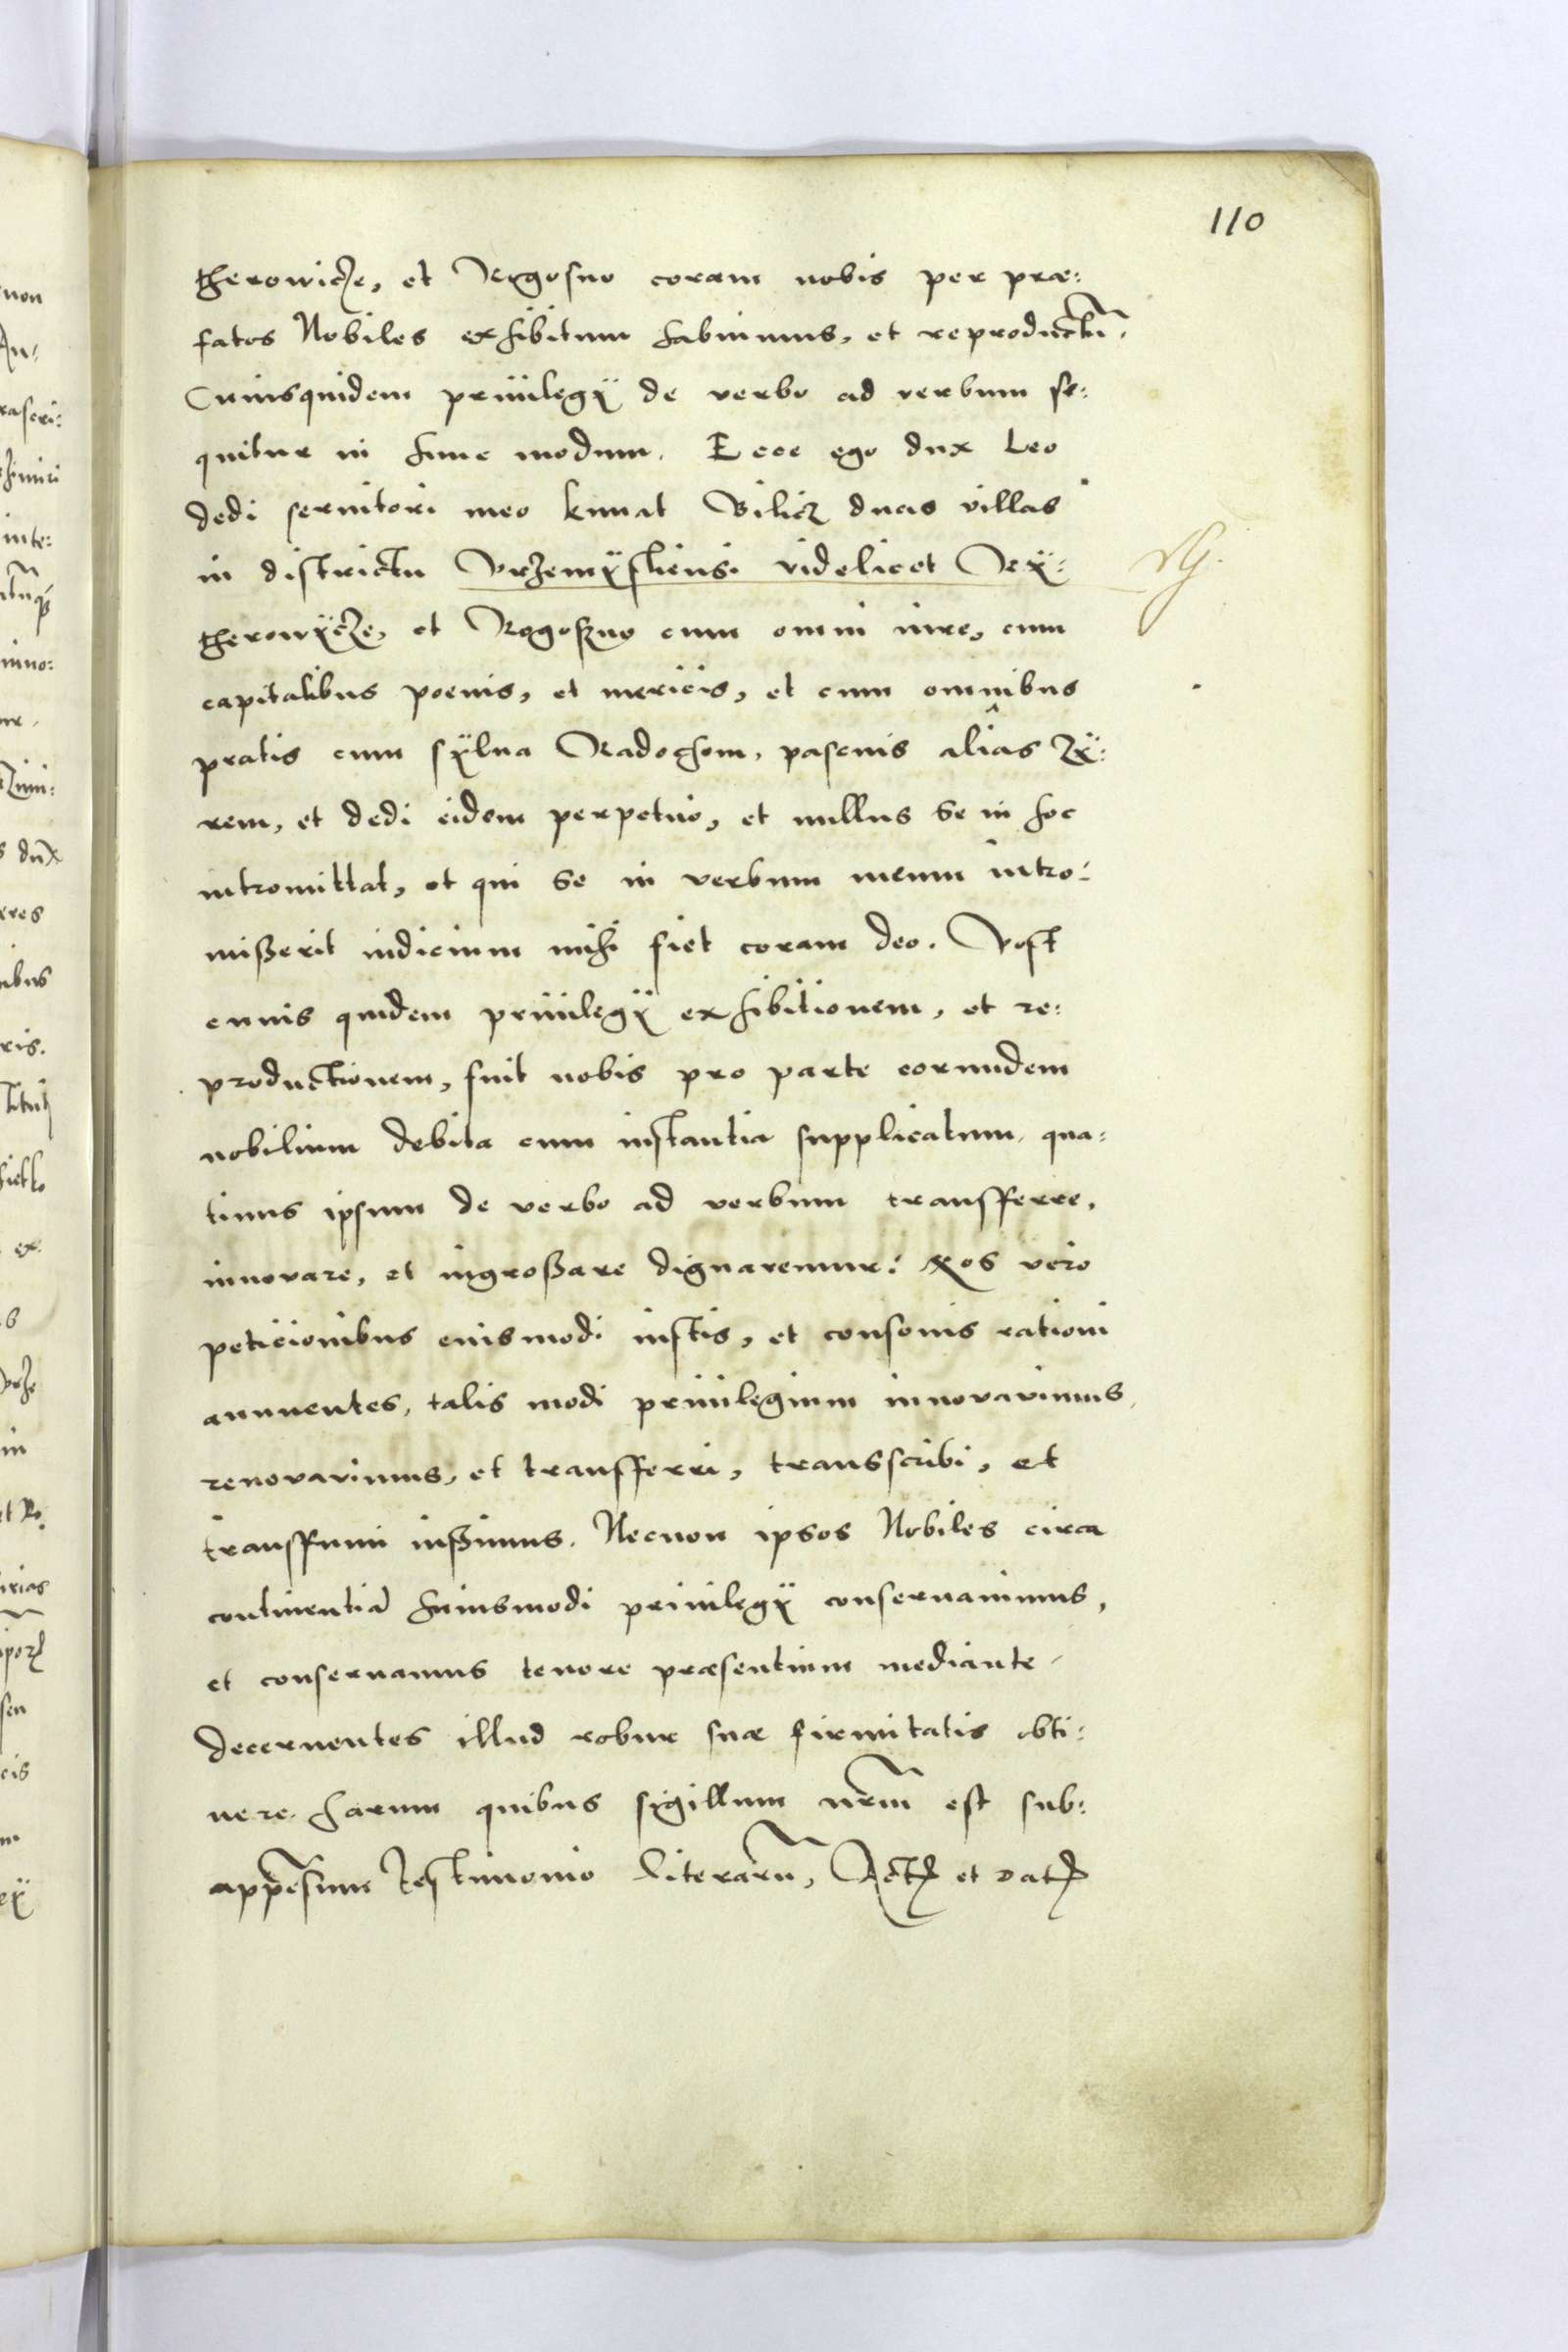 110
therowicze, et Rogosno coram nobis per præ:
fatos Nobiles exhibitum habuimus, et reproductũ.
Cuiusquidem priuilegÿ de verbo ad verbum se:
quitur in hunc modum. Ecce ego dux Leo
dedi seruitori meo kunat Bilicz duas villas
in districtu Przemÿsliensi videlicet Rÿ:
therowÿcze, et Rogoszno cum omni iure, cum
capitalibus poenis, et mericis, et cum omnibus
pratis cum sÿlua Radochom, pascuis aliâs Zÿ:
rem, et dedi eidem perpetuo, et nullus se in hoc
intromittat, et qui se in verbum meum intro:
mißerit iudicium mihi fiet coram deo. Post
cuius quidem priuilegÿ exhibitionem, et re:
productionem, fuit nobis pro parte eorundem
nobilium debita cum instantia supplicatum, qua:
tinus ipsum de verbo ad verbum transfferre,
innovare, et ingroßare dignaremur: Nos vero
peticionibus euismodi iustis, et consonis rationi
annuentes, talis modi priuilegium innovavimus,
renovavimus, et transfferri, transscribi, et
transsumi iußimus. Necnon ipsos Nobiles circa
continentiã huiusmodi priuilegÿ conseruauimus,
et conseruamus tenore præsentium mediante
decernentes illud robur suæ firmitatis obti:
nere. harum quibus sigillum nrm̃ est sub:
appẽsum testimonio literarũ, Act et dat